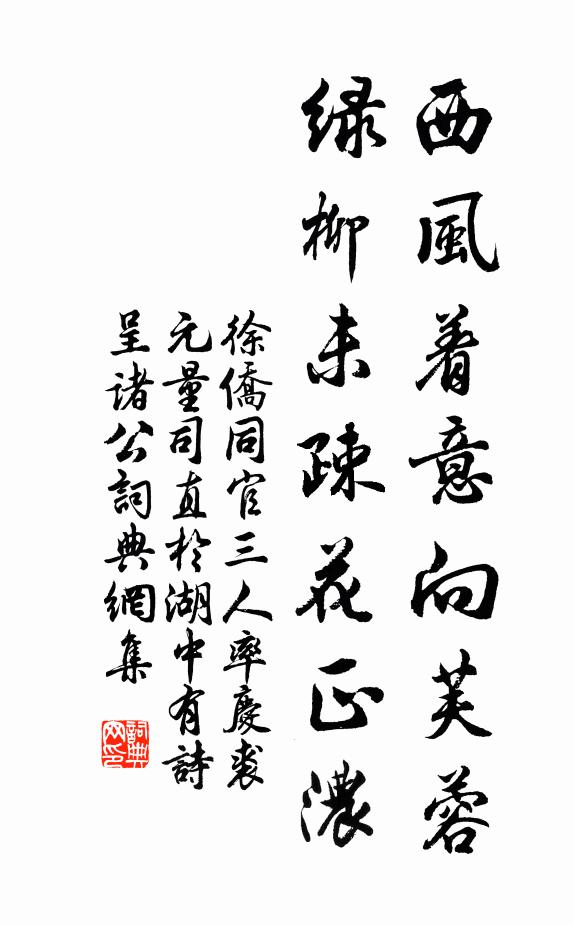 西風着意向芙蓉
緑柳未疎花正濃
徐僑同官三人率慶裘
元量司直於湖中有詩
呈诸公詞典網集
詞典網印